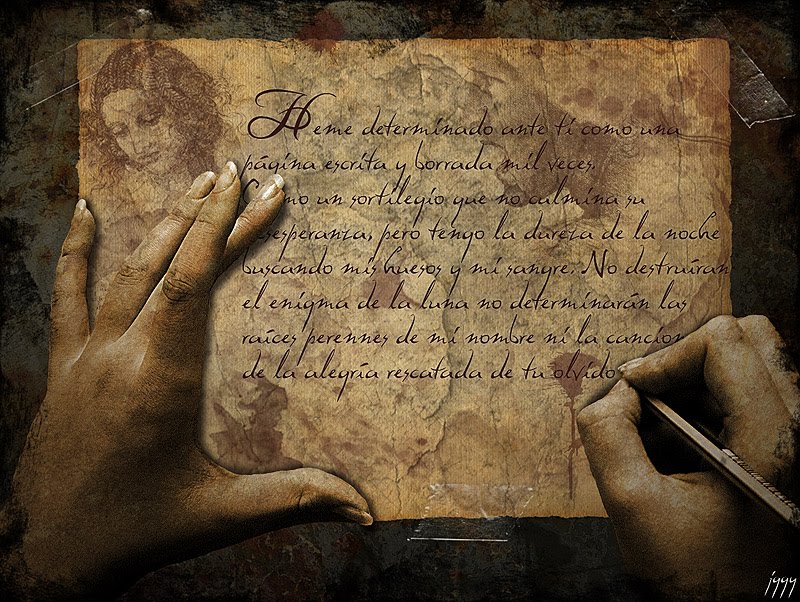 Heme determinado ante ti como una
página escrita y borrada mil veces.
Como un sortilegio que no culmina su
desesperanza, pero tengo la dureza de la noche
buscando mis huesos y mi sangre. No destruiran
el enigma de la luna no determinarán las
raíces perennes de mi nombre ni la cancion
de la alegría rescatada de tu olvido
jyyy